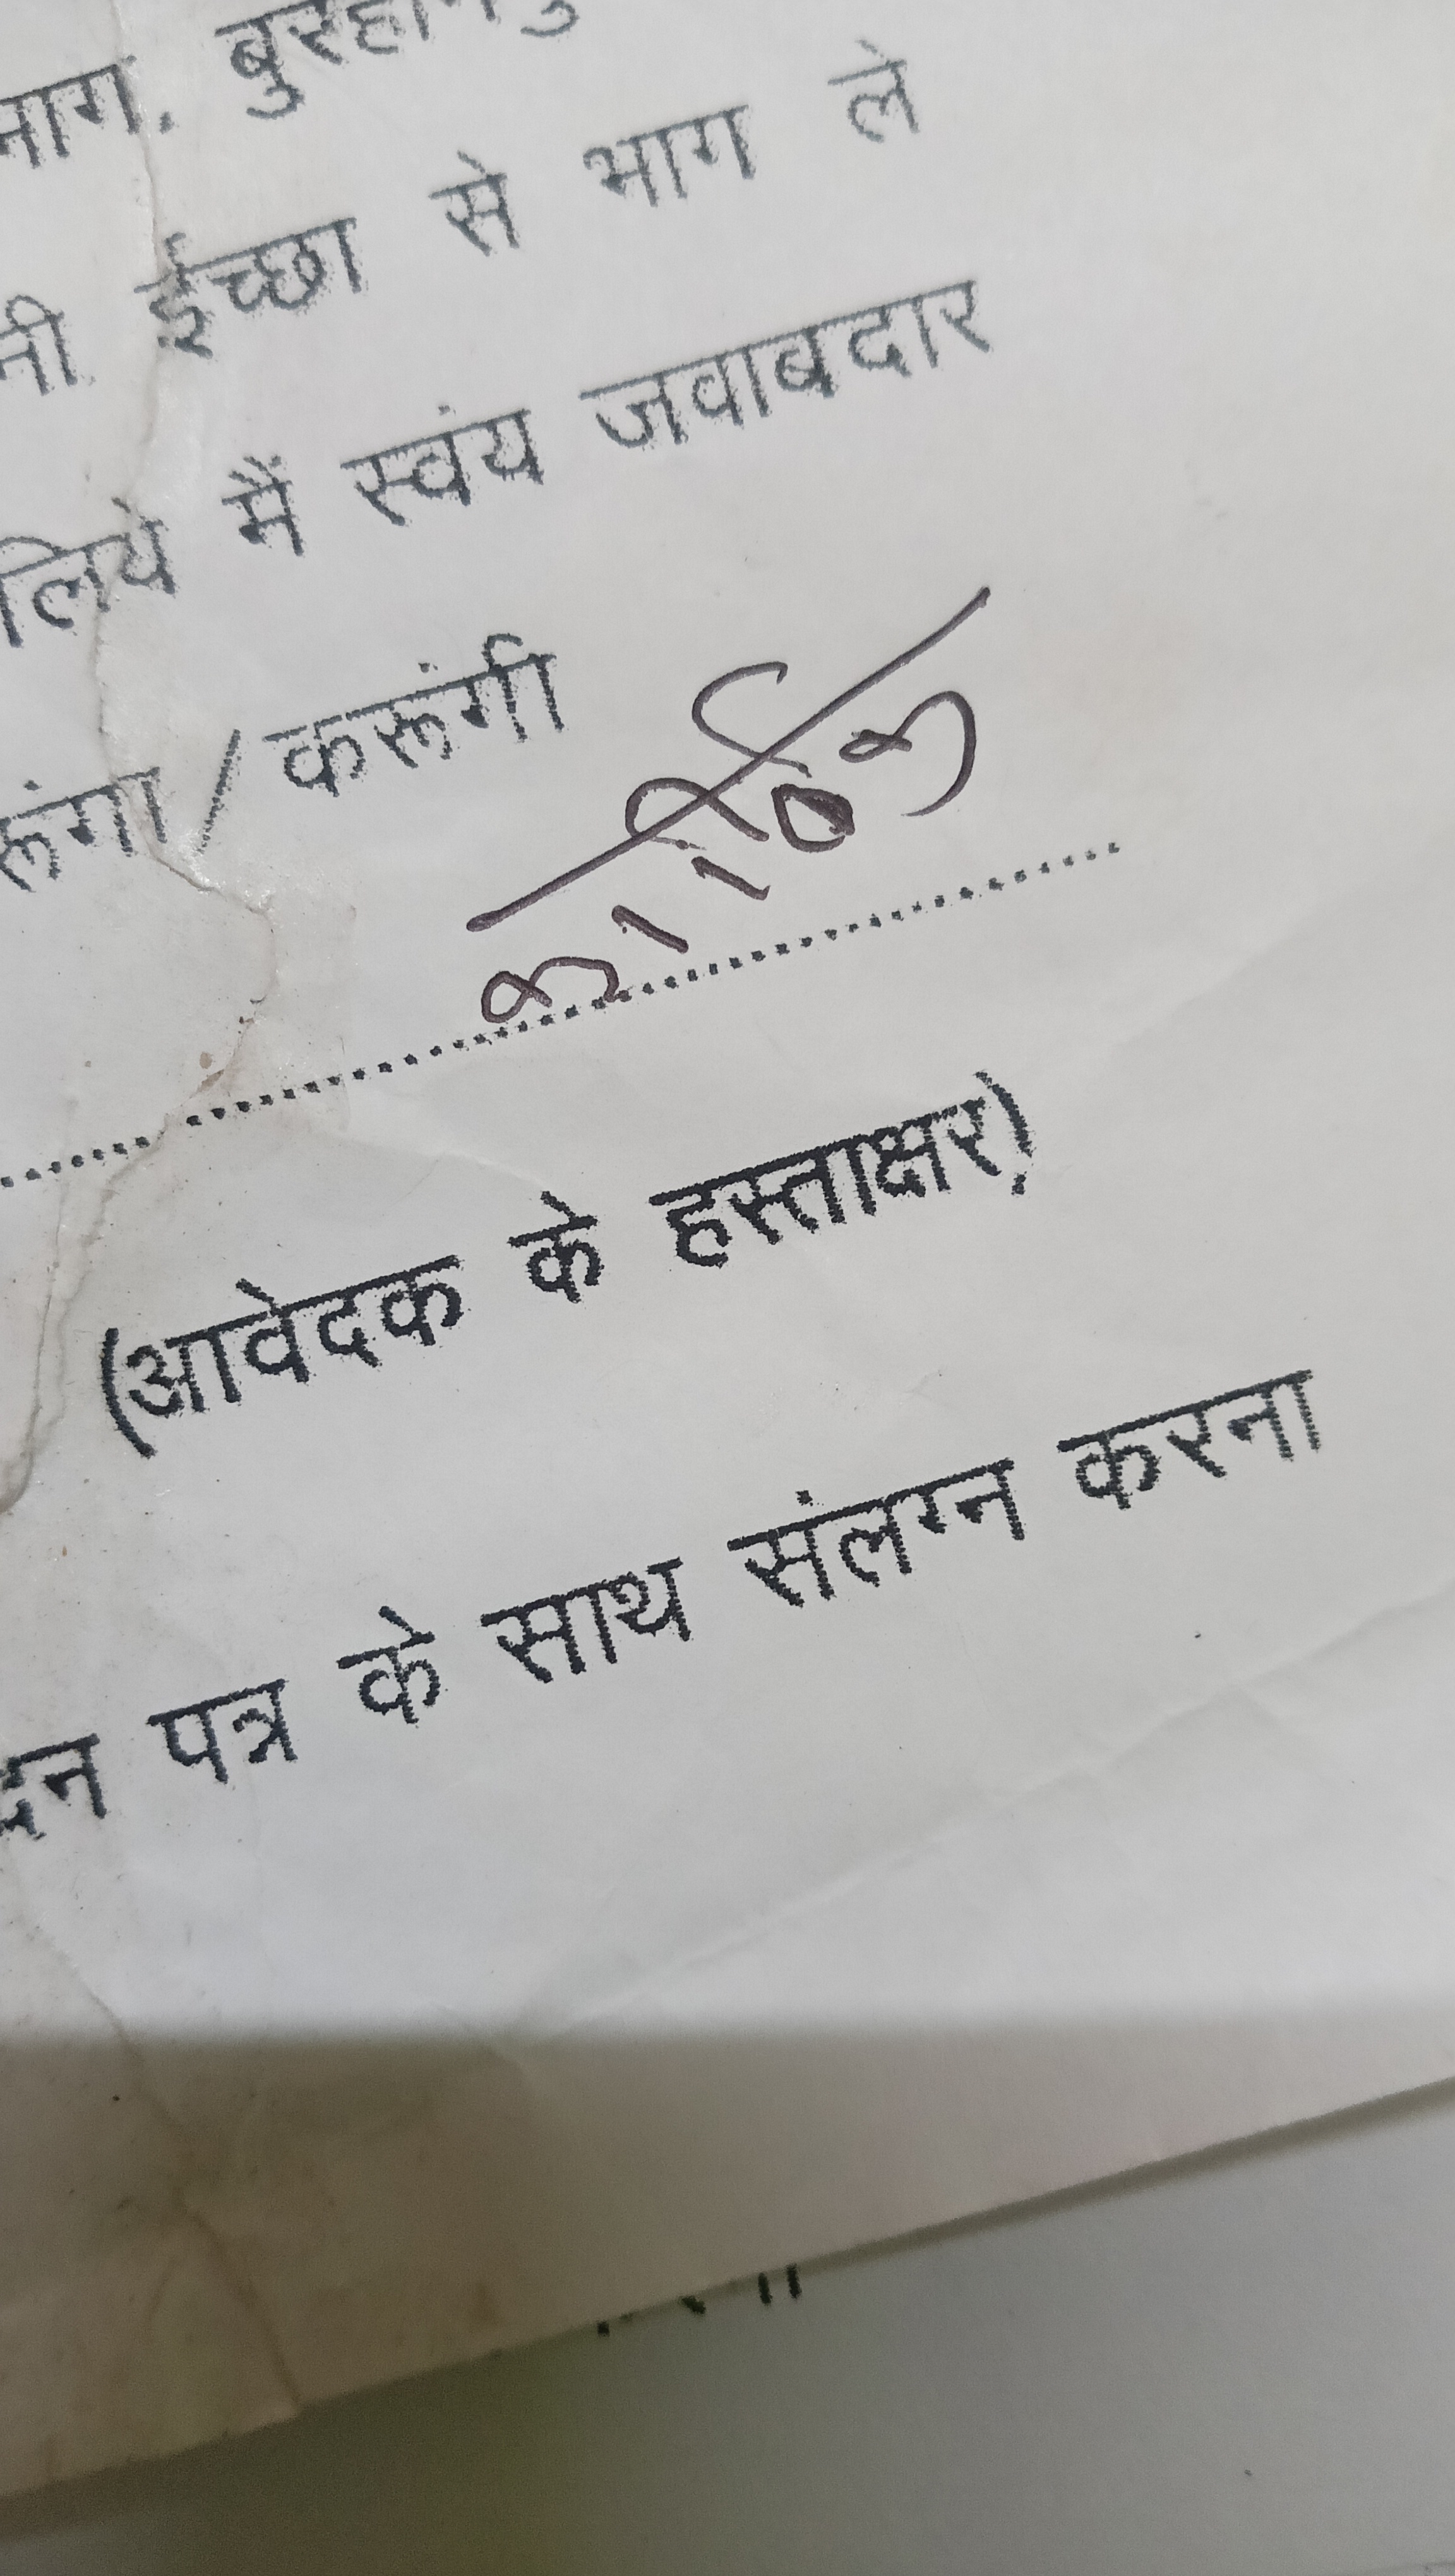 भाग. बुरहानपु
नी ईच्छा से भाग ले
लिये मैं स्वंय जवाबदार
रूंगा / करूंगी
(आवेदक के हस्ताक्षर)
दन पत्र के साथ संलग्न करना